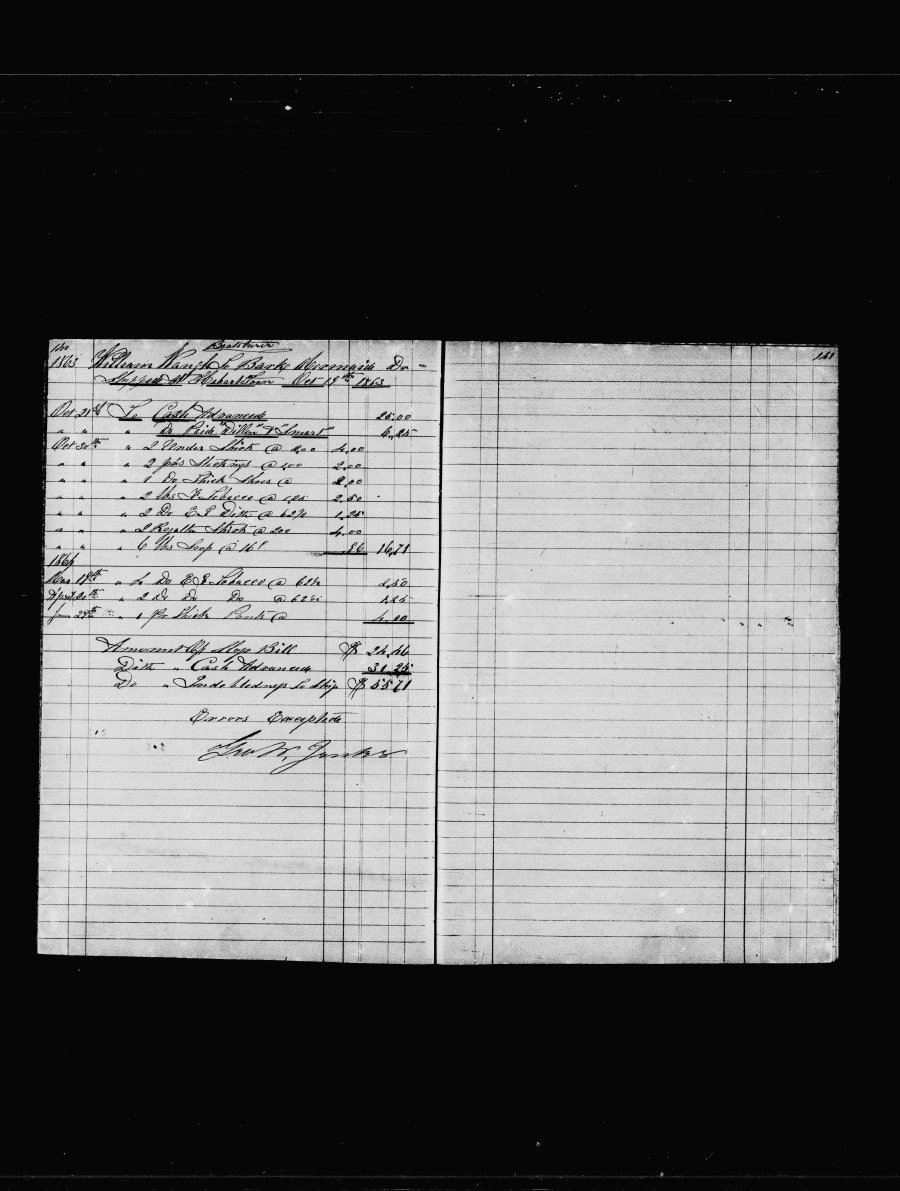 160
Boatsteerer
1863 William Waugh To Barke Mermaid Dr -
Shipped at Hobart Town Oct 19th 1863
Oct 21st To Cash Advanced 25.00
" " " Do Paid "Dillon" & "Smart" 6.25
Oct 30th " 2 Under Shirts @ 2.00 4.00
" " " 2 prs Stockings @ 1.00 2.00
" " " 1 Do Thick Shoes @ 2.00
" " " 2 lbs F Tobacco @ 1.25 2.50
" " " 2 Do E S Ditto @ 62½ 1.25
" " " 2 Regatta Shirts @ 200 4.00
" " " 6 lbs Soap @ 16! .96 16.71
1864
Mar 18th " 4 Do E S Tobacco @ 62½ 2.50
April 20th " 2 Do Do Do @ 62½ 1.25
June 29th " 1 Pr Thick Pants @ 4.00
Amount of Slop Bill $ 24.46
Ditto " Cash Advanced 31.25
Do " Indebtedness to Ship $ 55.71
Errors Excepted
Geo W. Jenks
161